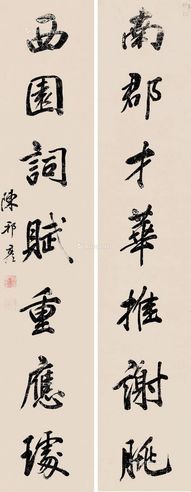 南郡才華推謝朓
西園詞賦重應璩
陳邦彥